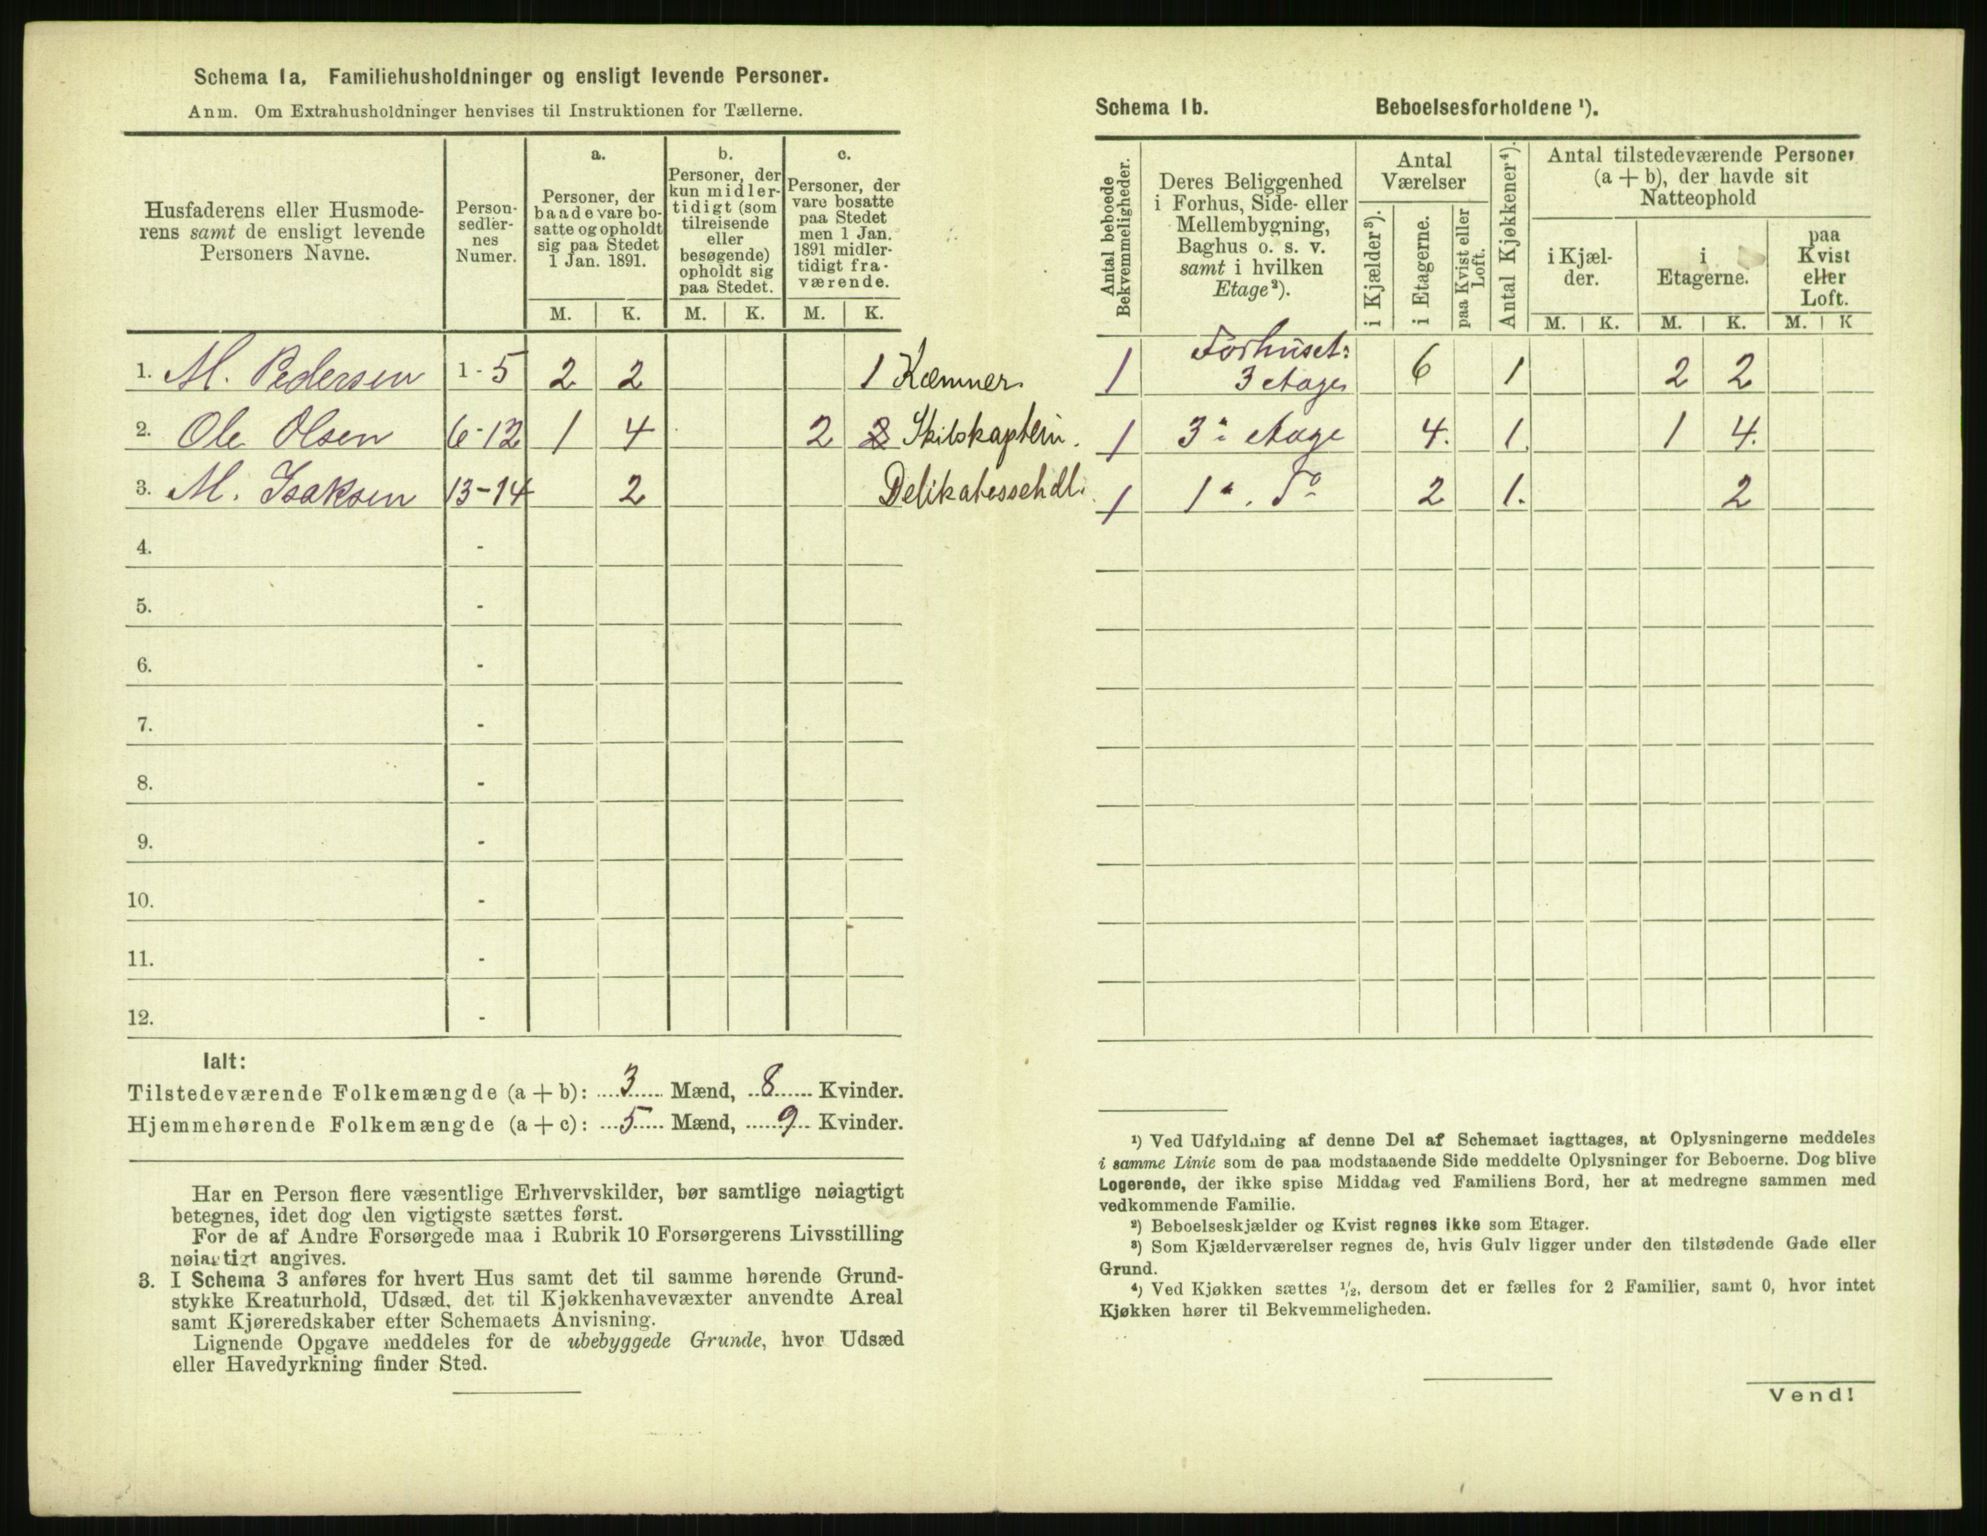 Schema 1a, Familiehusholdninger og ensligt levende Personer.
Anm. Om Extrahusholdninger henvises til Instruktionen for Tællerne.
Husfaderens eller Husmode-
rens samt de ensligt levende
Personers Navne.
Person-
sedler-
nes
Numer.
a.
Personer, der
baade vare bo-
satte og opholdt
sig paa Stedet
1 Jan. 1891.
b.
Personer, der
kun midler-
tidigt (som
tilreisende
eller
besøgende)
opholdt sig
paa Stedet.
c.
Personer, der
vare bosatte
paa Stedet
men 1 Jan.
1891 midler-
tidigt fra-
værende.
M. K. M. K. M. K.
1. M. Pedersen 1-5 2 2 1 Kæmner.
2. Ole Olsen 6-12 1 4 2 2 Skibskaptein.
3. M. Isaksen 13-14 2 Delikatessehdl.
4. -
5. -
6. -
7. -
8. -
9. -
10. -
11. -
12. -
Ialt:
Tilstedeværende Folkemængde (a + b): 3 Mænd, 8 Kvinder.
Hjemmehørende Folkemængde (a + c): 5 Mænd, 9 Kvinder.
Har en Person flere væsentlige Erhvervskilder, bør samtlige nøiagtigt
betegnes, idet dog den vigtigste sættes først.
For de af Andre Forsørgede maa i Rubrik 10 Forsørgerens Livsstilling
nøiagtigt angives.
3. I Schema 3 anføres for hvert Hus samt det til samme hørende Grund-
stykke Kreaturhold, Udsæd, det til Kjøkkenhavevæxter anvendte Areal
samt Kjøreredskaber efter Schemaets Anvisning.
Lignende Opgave meddeles for de ubebyggede Grunde, hvor Udsæd
eller Havedyrkning finder Sted.
Schema 1b. Beboelsesforholdene ¹).
Antal beboede
Bekvemmeligheder.
Deres Beliggenhed
i Forhus, Side- eller
Mellembygning,
Baghus o. s. v.
samt i hvilken
Etage²).
Antal
Værelser
i Kjælder³).
i Etagerne.
paa Kvist eller
Loft.
Antal Kjøkkener⁴).
Antal tilstedeværende Personer
(a + b), der havde sit
Natteophold
i Kjæl-
der.
i
Etagerne.
paa
Kvist
eller
Loft.
M. K. M. K. M. K
1 Forhuset: 3 Etage 6 1 2 2
1 3 Etage 4. 1. 1 4.
1 1 " . D⁰ 2 1. 2
¹) Ved Udfyldning af denne Del af Schemaet iagttages, at Oplysningerne meddeles
i samme Linie som de paa modstaaende Side meddelte Oplysninger for Beboerne. Dog blive
Logerende, der ikke spise Middag ved Familiens Bord, her at medregne sammen med
vedkommende Familie.
²) Beboelseskjælder og Kvist regnes ikke som Etager.
³) Som Kjælderværelser regnes de, hvis Gulv ligger under den tilstødende Gade eller
Grund.
⁴) Ved Kjøkken sættes ½, dersom det er fælles for 2 Familier, samt 0, hvor intet
Kjøkken hører til Bekvemmeligheden.
Vend!